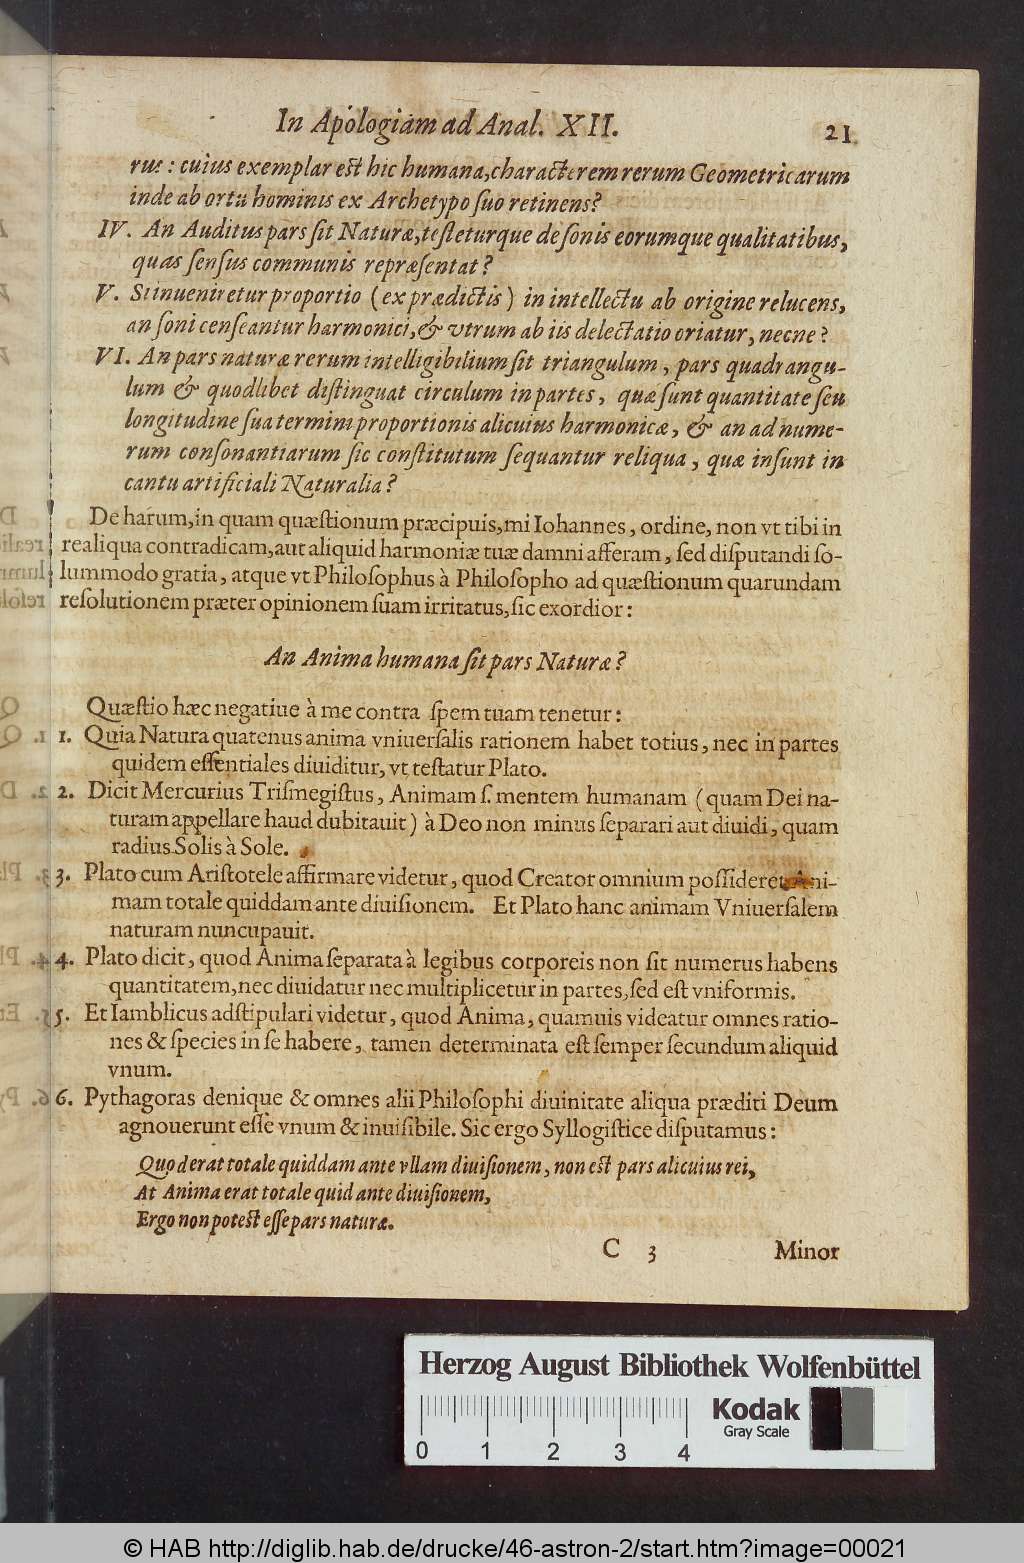 In Apologiam ad Anal. XII. 21
rus: cuius exemplar est hic humana, characterem rerum Geometricarum
inde ab ortu hominis ex Archetypo suo retinens?
IV. An Auditus pars sit Naturæ, testeturque de sonis eorumque qualitatibus,
quas sensus communis repræsentat?
V. Si inueniretur proportio (ex prædictis) in intellectu ab origine relucens,
an soni censeantur harmonici, & vtrum ab iis delectatio oriatur, necne?
VI. An pars naturæ rerum intelligibilium sit triangulum, pars quadrangu-
lum & quodlibet distinguat circulum in partes, quæ sunt quantitate seu
longitudine sua termini proportionis alicuius harmonicæ, & an ad nume-
rum consonantiarum sic constitutum sequantur reliqua, quæ insunt in
cantu artificiali Naturalia?
De harum, in quam quæstionum præcipuis, mi Iohannes, ordine, non vt tibi in
realiqua contradicam, aut aliquid harmoniæ tuæ damni afferam, sed disputandi so-
lummodo gratia, atque vt Philosophus à Philosopho ad quæstionum quarundam
resolutionem præter opinionem suam irritatus, sic exordior:
An Anima humana sit pars Naturæ?
Quæstio hæc negatiue à me contra spem tuam tenetur:
1. Quia Natura quatenus anima vniuersalis rationem habet totius, nec in partes
quidem essentiales diuiditur, vt testatur Plato.
2. Dicit Mercurius Trismegistus, Animam s. mentem humanam (quam Dei na-
turam appellare haud dubitauit) à Deo non minus separari aut diuidi, quam
radius Solis à Sole.
3. Plato cum Aristotele affirmare videtur, quod Creator omnium possideret Ani-
mam totale quiddam ante diuisionem. Et Plato hanc animam Vniuersalem
naturam nuncupauit.
4. Plato dicit, quod Anima separata à legibus corporeis non sit numerus habens
quantitatem, nec diuidatur nec multiplicetur in partes, sed est vniformis.
5. Et Iamblicus adstipulari videtur, quod Anima, quamuis videatur omnes ratio-
nes & species in se habere, tamen determinata est semper secundum aliquid
vnum.
6. Pythagoras denique & omnes alii Philosophi diuinitate aliqua præditi Deum
agnouerunt esse vnum & inuisibile. Sic ergo Syllogistice disputamus:
Quod erat totale quiddam ante vllam diuisionem, non est pars alicuius rei,
At Anima erat totale quid ante diuisionem,
Ergo non potest esse pars naturæ.
C 3 Minor
Herzog August Bibliothek Wolfenbüttel
Kodak
Gray Scale
0 1 2 3 4
© HAB http://diglib.hab.de/drucke/46-astron-2/start.htm?image=00021